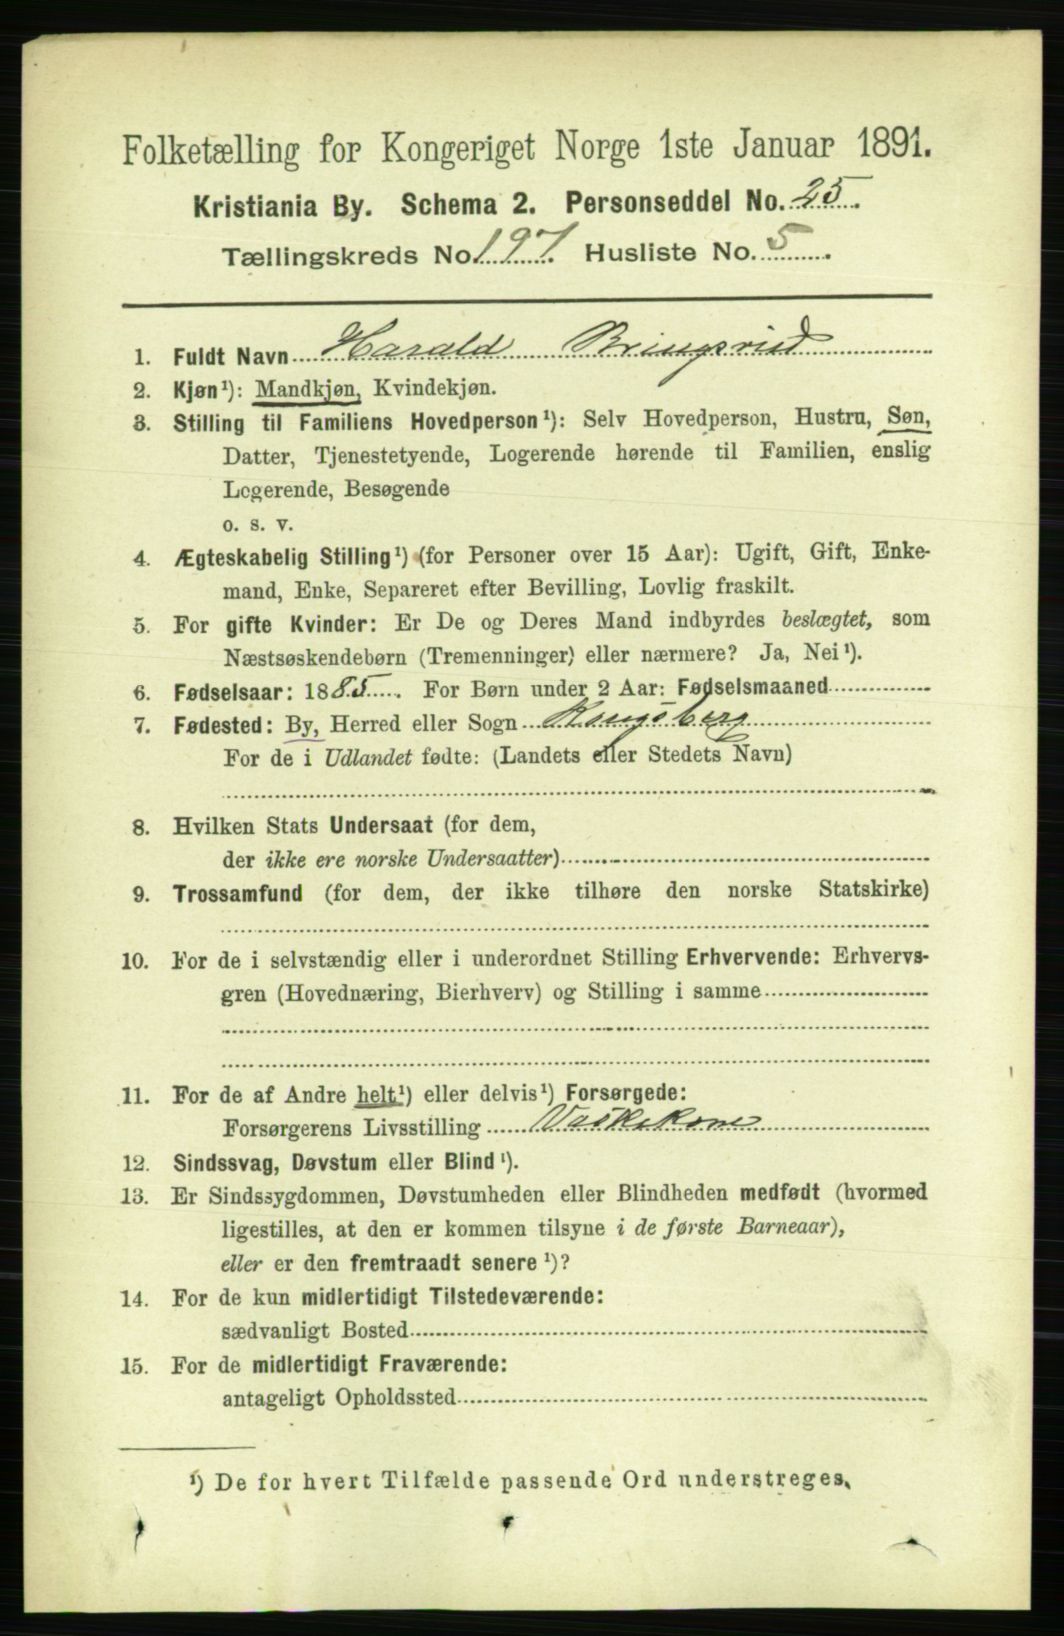 Folketælling for Kongeriget Norge 1ste Januar 1891.
Kristiania By. Schema 2. Personseddel No. 25.
Tællingskreds No. 197. Husliste No. 5.
1. Fuldt Navn Harald Bringsrud
2. Kjøn¹): Mandkjøn, Kvindekjøn.
3. Stilling til Familiens Hovedperson¹): Selv Hovedperson, Hustru, Søn,
Datter, Tjenestetyende, Logerende hørende til Familien, enslig
Logerende, Besøgende
o. s. v.
4. Ægteskabelig Stilling¹) (for Personer over 15 Aar): Ugift, Gift, Enke-
mand, Enke, Separeret efter Bevilling, Lovlig fraskilt.
5. For gifte Kvinder: Er De og Deres Mand indbyrdes beslægtet, som
Næstsøskendebørn (Tremenninger) eller nærmere? Ja, Nei¹).
6. Fødselsaar: 1885. For Børn under 2 Aar: Fødselsmaaned
7. Fødested: By, Herred eller Sogn Kongsberg
For de i Udlandet fødte: (Landets eller Stedets Navn)
8. Hvilken Stats Undersaat (for dem,
der ikke ere norske Undersaatter)
9. Trossamfund (for dem, der ikke tilhøre den norske Statskirke)
10. For de i selvstændig eller i underordnet Stilling Erhvervende: Erhvervs-
gren (Hovednæring, Bierhverv) og Stilling i samme
11. For de af Andre helt¹) eller delvis¹) Forsørgede:
Forsørgerens Livsstilling Vaskekone
12. Sindssvag, Døvstum eller Blind¹).
13. Er Sindssygdommen, Døvstumheden eller Blindheden medfødt (hvormed
ligestilles, at den er kommen tilsyne i de første Barneaar),
eller er den fremtraadt senere¹)?
14. For de kun midlertidigt Tilstedeværende:
sædvanligt Bosted
15. For de midlertidigt Fraværende:
antageligt Opholdssted
¹) De for hvert Tilfælde passende Ord understreges.